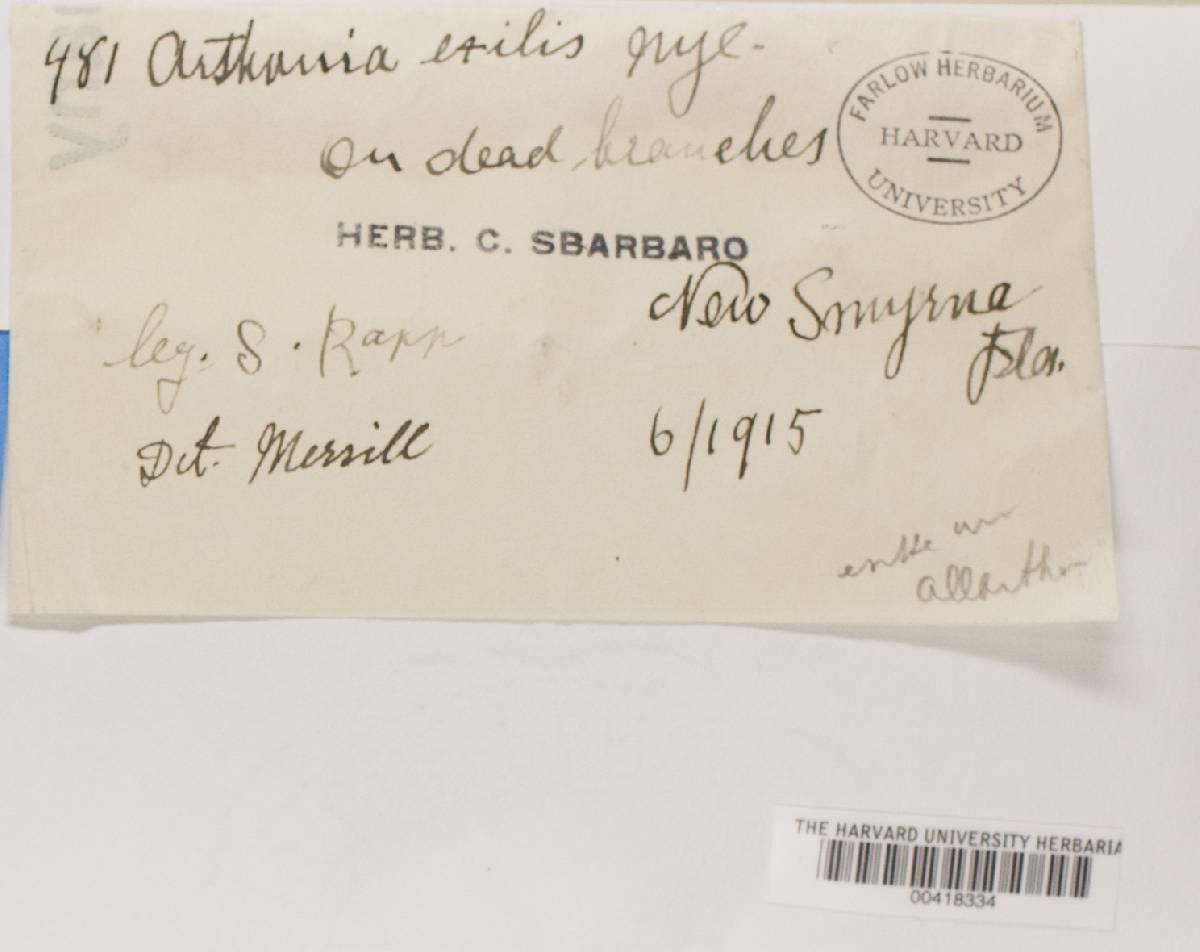 481 Arthonia exilis nyl.
on dead branches
FARLOW HERBARIUM
HARVARD
UNIVERSITY
HERB. C. SBARBARO
New Smyrna
Fla.
leg. S. Rapp
Det. Merrill
6/1915
THE HARVARD UNIVERSITY HERBARIA
00418334